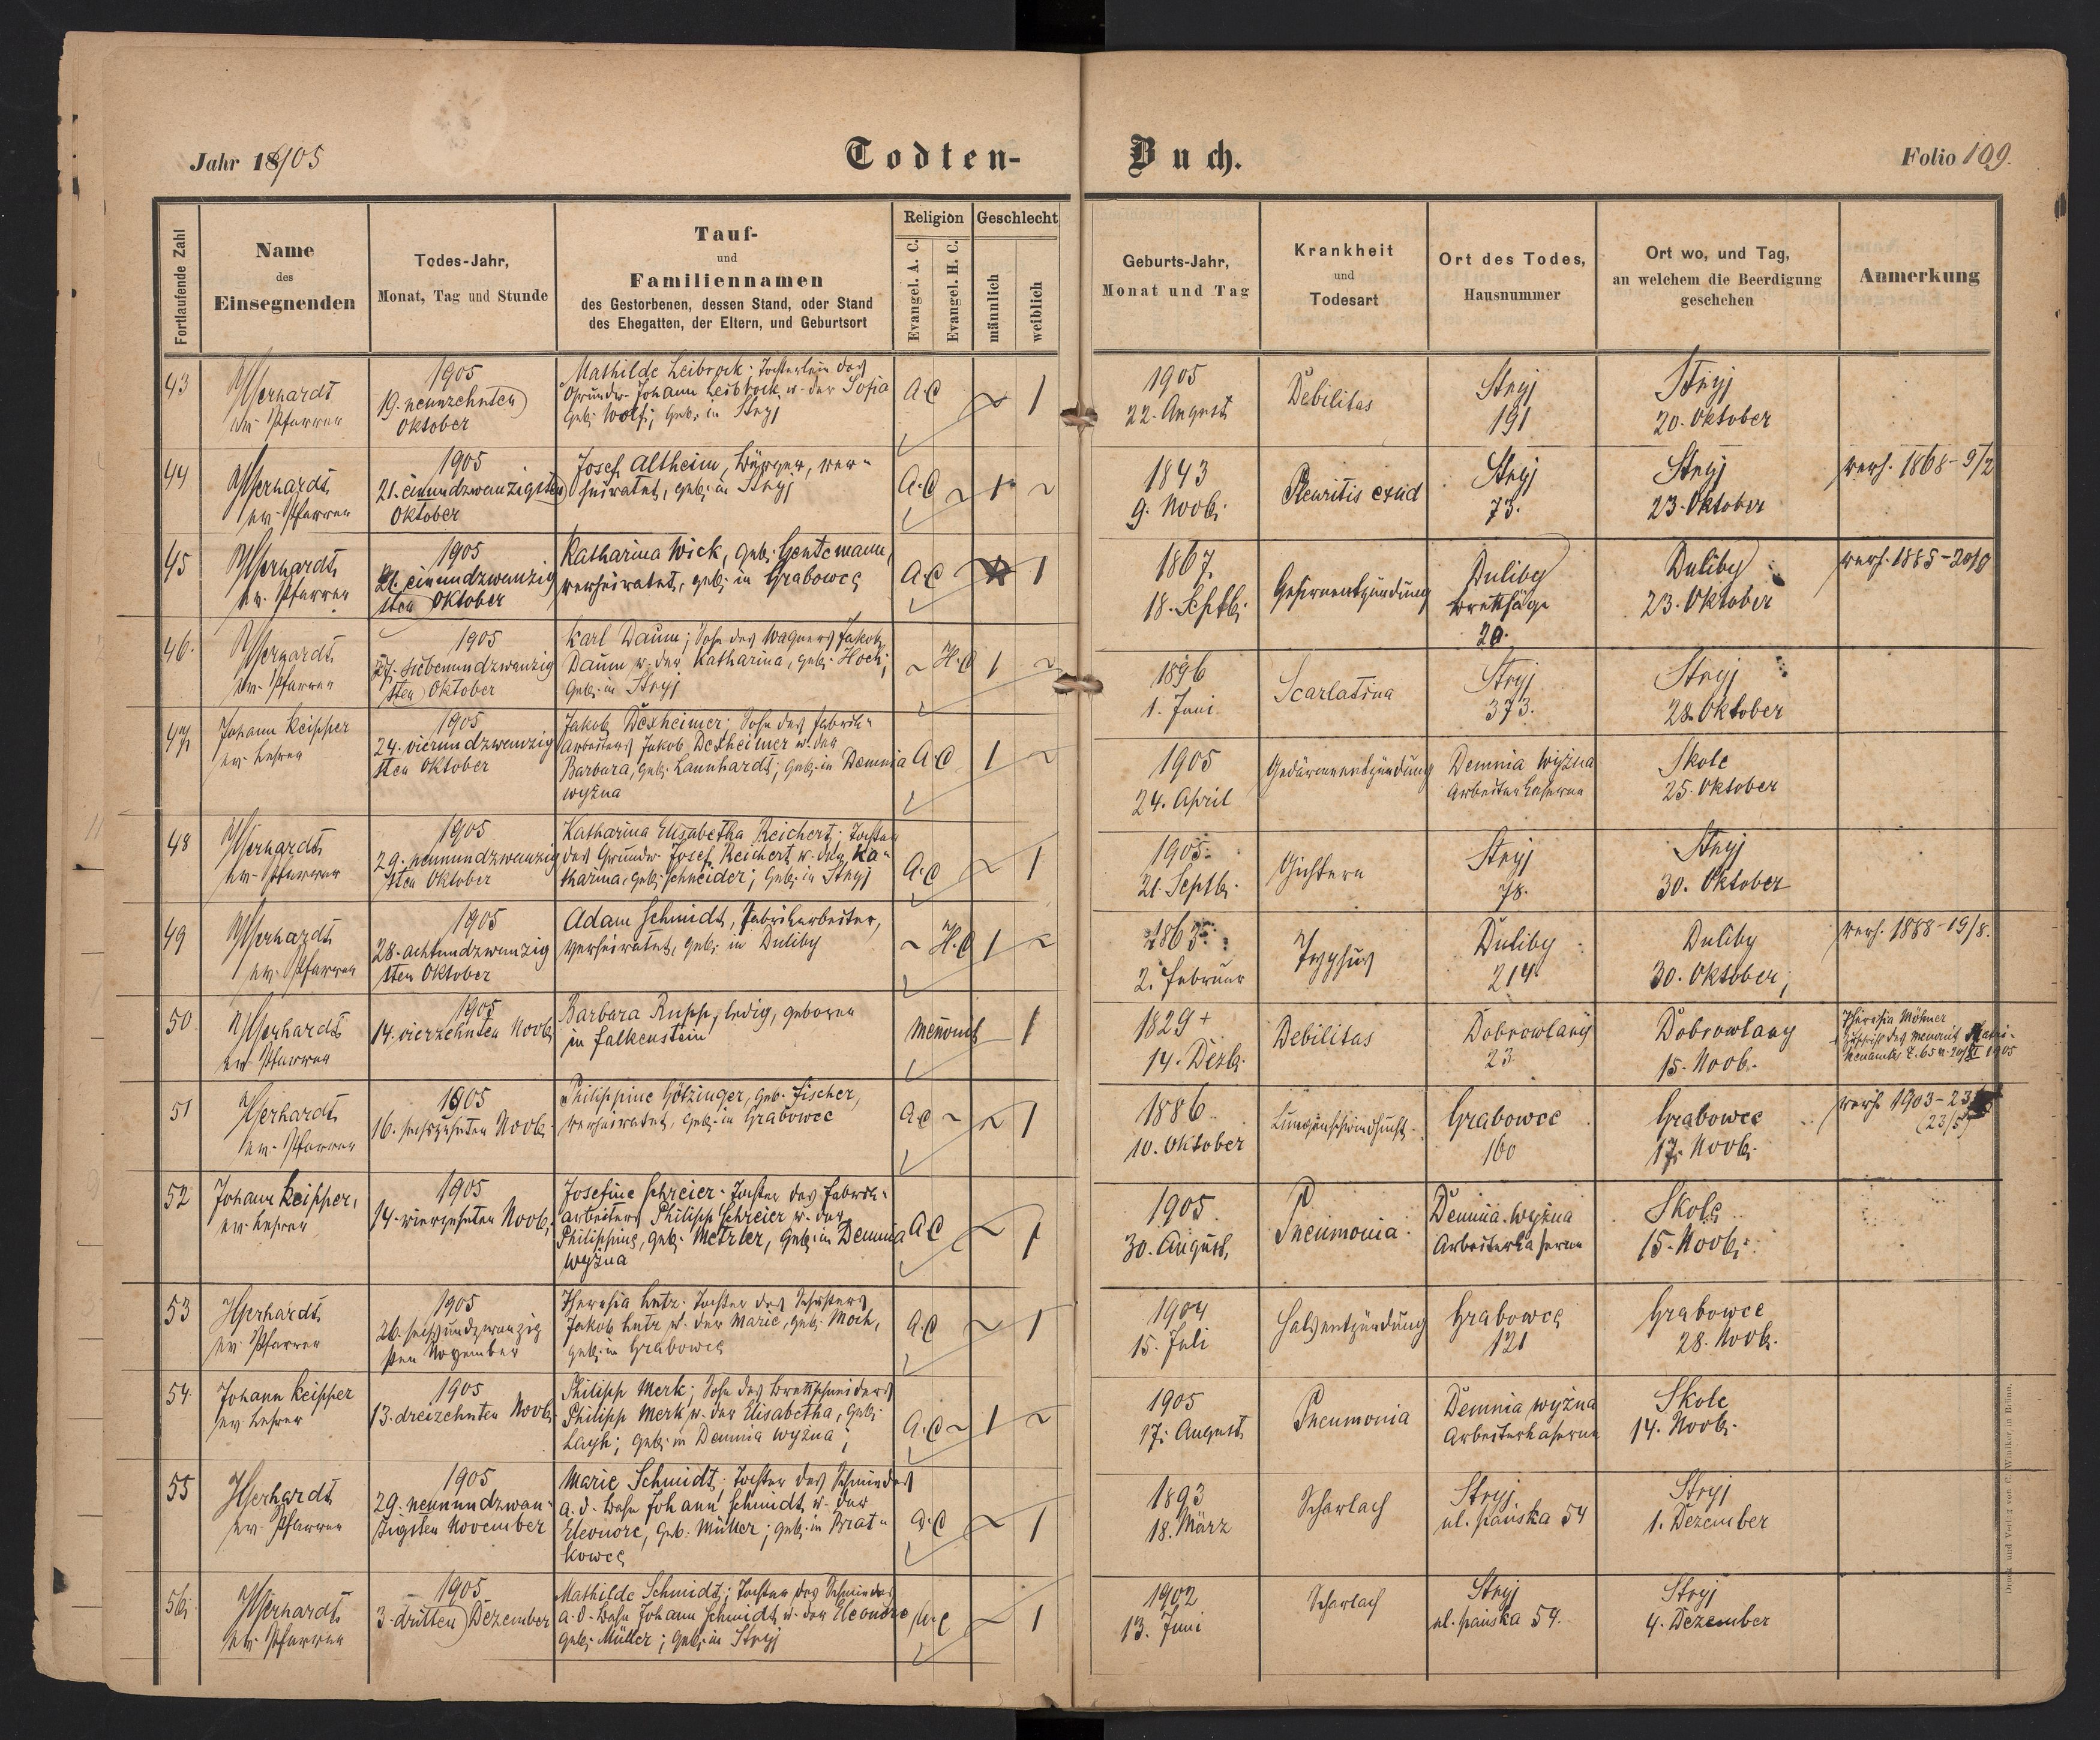 Jahr 1905
Todten-
Buch.
Folio 109.
Fortlaufende Zahl
Name
des
Einsegnenden
Todes-Jahr,
Monat, Tag und Stunde
Tauf-
und
Familiennamen
des Gestorbenen, dessen Stand, oder Stand
des Ehegatten, der Eltern, und Geburtsort
Religion
Evangel. A. C.
Evangel. H. C.
Geschlecht
männlich
weiblich
Geburts-Jahr,
Monat und Tag
Krankheit
und
Todesart
Ort des Todes,
Hausnummer
Ort wo, und Tag,
an welchem die Beerdigung
geschehen
Anmerkung
43
ev. Pfarrer
1905
19. neunzehnten
Oktober
Mathilde Leibrock; Töchterlein des
Grundw. Johann Leibrock u. der Sofia
geb. Wolf; geb. in Stryj
A.C
1
1905
22. August
Debilitas
Stryj
191
Stryj
20. Oktober
44
ev. Pfarrer
1905
21. einundzwanzigsten
Oktober
Josef Altheim, Bürger, ver-
heiratet, geb. in Stryj
A.C
1
1843
9. Novb.
Pleuritis exud
Stryj
73.
Stryj
23. Oktober
verh. 1868-9/2
45
ev. Pfarrer
1905
21. einundzwanzig
sten Oktober
Katharina Wick, geb. Gentemann,
verheiratet, geb. in Grabowce
A.C
1
1867
18. Septb.
Gehirnentzündung
Duliby
Brettsäge
20.
Duliby
23. Oktober
verh. 1885-
46.
ev. Pfarrer
1905
27. siebenundzwanzig
sten Oktober
Karl Daum; Sohn des Wagners Jakob
Daum u. der Katharina, geb. Hoch;
geb. in Stryj
H.C
1
1896
1. Juni
Scarlatina
Stryj
373.
Stryj
28. Oktober
47
Johann Keipper
ev. Lehrer
1905
24. vierundzwanzig
sten Oktober
Jakob Dexheimer; Sohn des Fabrik-
arbeiters Jakob Dexheimer u. der
Barbara, geb. Launhardt; geb. in Demnia
wyżna
A.C
1
1905
24. April
Gedärmentzündung
Demnia wyżna
Arbeiterkaserne
Skole
25. Oktober
48
ev. Pfarrer
1905
29. neunundzwanzig
sten Oktober
Katharina Elisabetha Reichert; Tochter
des Grundw. Josef Reichert u. der Ka-
tharina, geb. Schneider; geb. in Stryj
A.C
1
1905
21. Septb.
Gichtern
Stryj
78.
Stryj
30. Oktober
49
ev. Pfarrer
1905
28. achtundzwanzig
sten Oktober
Adam Schmidt, Fabrikarbeiter,
verheiratet, geb. in Duliby
H.C
1
1863
2. Februar
Typhus
Duliby
214
Duliby
30. Oktober
verh. 1888-19/8.
50
ev. Pfarrer
1905
14. vierzehnten Novb.
Barbara Rupp, ledig, geboren
in Falkenstein
Menonit
1
1829 +
14. Dezb.
Debilitas
Dobrowlany
23.
Dobrowlany
15. Novb.
Theresia
1905
51
ev. Pfarrer
1905
16. sechszehnten Novb.
Philippine Götzinger, geb. Fischer,
verheiratet, geb. in Grabowce
A.C
1
1886
10. Oktober
Lungenschwindsucht
Grabowce
100
Grabowce
17. Novb.
verh. 1903-
(23/5)
52
Johann Keipper,
ev. Lehrer
1905
14. vierzehnten Novb.
Josefine Schreier; Tochter des Fabrik-
arbeiters Philipp Schreier u. der
Philippine, geb. Metzler, geb. in Demnia
wyżna
A.C
1
1905
30. August
Pneumonia
Demnia wyżna
Arbeiterkaserne
Skole
15. Novb.
53
ev. Pfarrer
1905
26. sechsundzwanzig
sten November
Theresia Lutz; Tochter des Schusters
Jakob Lutz u. der Marie, geb. Moch,
geb. in Grabowce
A.C
1
1904
15. Juli
Halsentzündung
Grabowce
121
Grabowce
28. Novb.
54
Johann Keipper
ev. Lehrer
1905
13. dreizehnten Novb.
Philipp Merk; Sohn des Brettschneiders
Philipp Merk u. der Elisabetha, geb.
geb. in Demnia wyżna
A.C
1
1905
17. August
Pneumonia
Demnia wyżna
Arbeiterkaserne
Skole
14. Novb.
55
ev. Pfarrer
1905
29. neunundzwan-
zigsten November
Marie Schmidt; Tochter des Schmiedes
a. d. Bahn Johann Schmidt u. der
Eleonore, geb. Müller; geb. in Brat-
kowce
A.C
1
1893
18. März
Scharlach
Stryj
ul. pańska 54
Stryj
1. Dezember
56.
ev. Pfarrer
1905
3. dritten Dezember
Mathilde Schmidt; Tochter des Schmiedes
a. d. Bahn Johann Schmidt u. der Eleonore
geb. Müller; geb. in Stryj
A.C
1
1902
13. Juni
Scharlach
Stryj
ul. pańska 54.
Stryj
4. Dezember
Druck und Verlag von C. Winiker in Brünn.